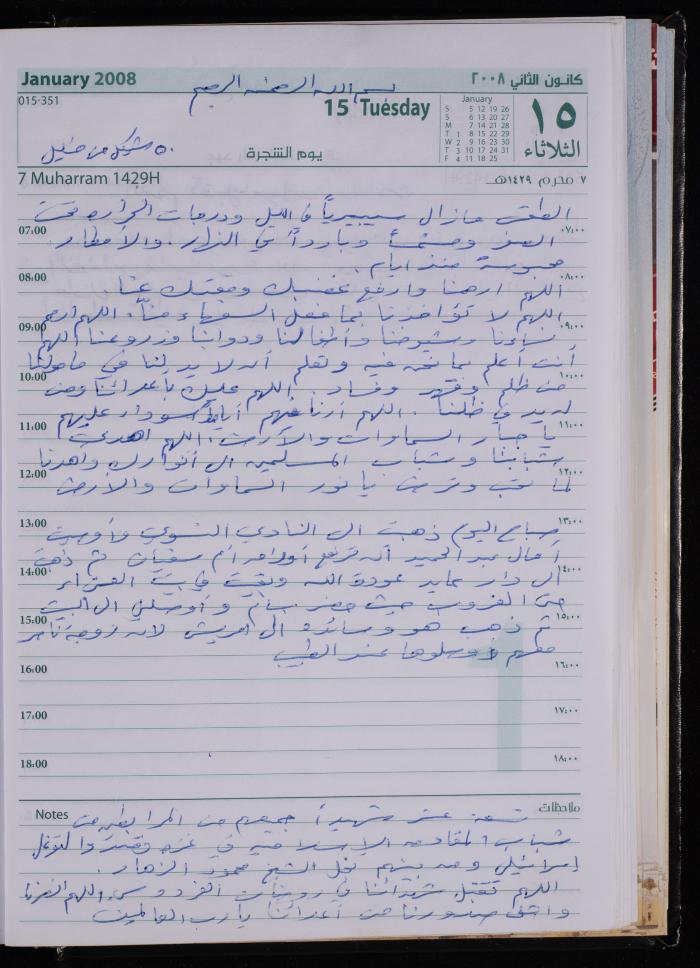 January 2008
كانون الثاني ٢٠٠٨
بسم الله الرحمن الرحيم
015-351
15 Tuesday
January
S 5 12 19 26
S 6 13 20 27
M 7 14 21 28
T 1 8 15 22 29
W 2 9 16 23 30
T 3 10 17 24 31
F 4 11 18 25
١٥
الثلاثاء
٥٠ شيكل من
يوم الشجرة
7 Muharram 1429H
٧ محرم ١٤٢٩هـ
الطقس مازال سيبيرياً في الليل ودرجات الحرارة تحت
07:00 ٠٧:٠٠
الصفر ومشمساً وبارداً في النهار. والأمطار
محبوسة منذ أيام.
08:00 ٠٨:٠٠
اللهم ارحمنا وارفع غضبك ومقتك عنا
اللهم لا تؤاخذنا بما فعل السفهاء منا، اللهم ارحم
09:00 ٠٩:٠٠
نساءنا وشيوخنا وأطفالنا ودوابنا وزروعنا اللهم
أنت أعلم بما نحن فيه وتعلم أنه لا يد لنا في ما حولنا
10:00 ١٠:٠٠
من ظلم وقهر وفساد. اللهم عليك بأعدائنا ومن
له يد في ظلمنا. اللهم أرنا فيهم أياماً سوداء عليهم
11:00 ١١:٠٠
يا جبار السماوات والأرض، اللهم اهدي
شبابنا وشباب المسلمين الى أنوارك واهدنا
12:00 ١٢:٠٠
لما تحب وترضى يا نور السماوات والأرض
13:00 ١٣:٠٠
صباح اليوم ذهبت الى النادي النسوي وأوصيت
آمال عبد الحميد أن ترفع أوراق أم سفيان ثم ذهبت
14:00 ١٤:٠٠
الى دار عايد عودة الله وبقيت في بيت العزاء
حتى الغروب حيث حضر بسام وأوصلني الى البيت
15:00 ١٥:٠٠
ثم ذهب هو وسائدة الى لأن زوجة ناصر
معهم وأوصلوها عند الطبيب
16:00 ١٦:٠٠
17:00 ١٧:٠٠
18:00 ١٨:٠٠
Notes ملاحظات
تسعة عشر شهيداً جميعهم من المرابطين من
شباب المقاومة الإسلامية في غزة وقصدوا للتوغل
إسرائيلي ومن بينهم نجل الشيخ محمود الزهار.
اللهم تقبل شهداءنا في روضات الفردوس، اللهم انصرنا
واشف صدورنا من أعدائنا يا رب العالمين